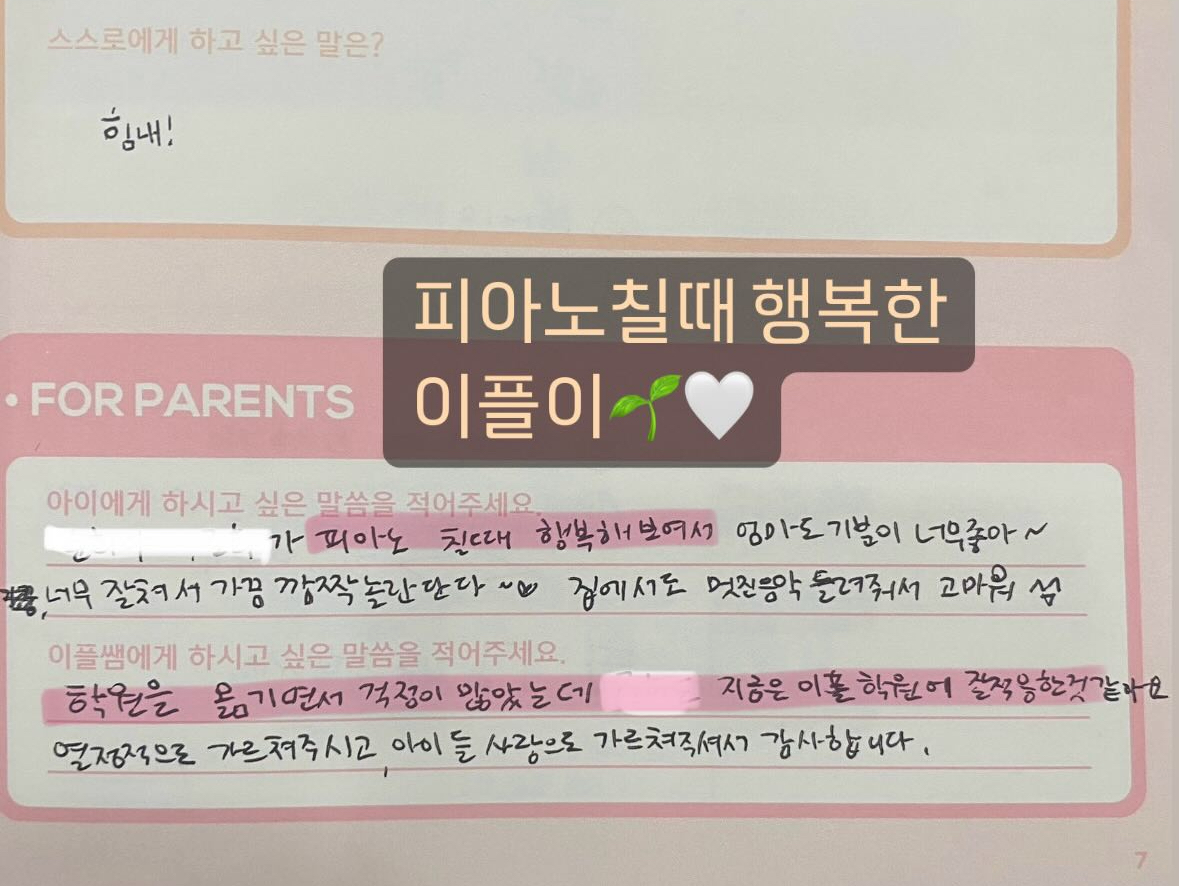 스스로에게 하고 싶은 말은?
힘내!
피아노칠때 행복한
이플이🌱🤍
• FOR PARENTS
아이에게 하시고 싶은 말씀을 적어주세요.
가 피아노 칠때 행복해보여서 엄마도 기분이 너무좋아~
너무 잘쳐서 가끔 깜짝놀란단다~♡ 집에서도 멋진음악 들려줘서 고마워
이플쌤에게 하시고 싶은 말씀을 적어주세요.
학원을 옮기면서 걱정이 많았는데 지금은 이플학원에 잘적응한것같아요
열정적으로 가르쳐주시고, 아이들 사랑으로 가르쳐주셔서 감사합니다.
7